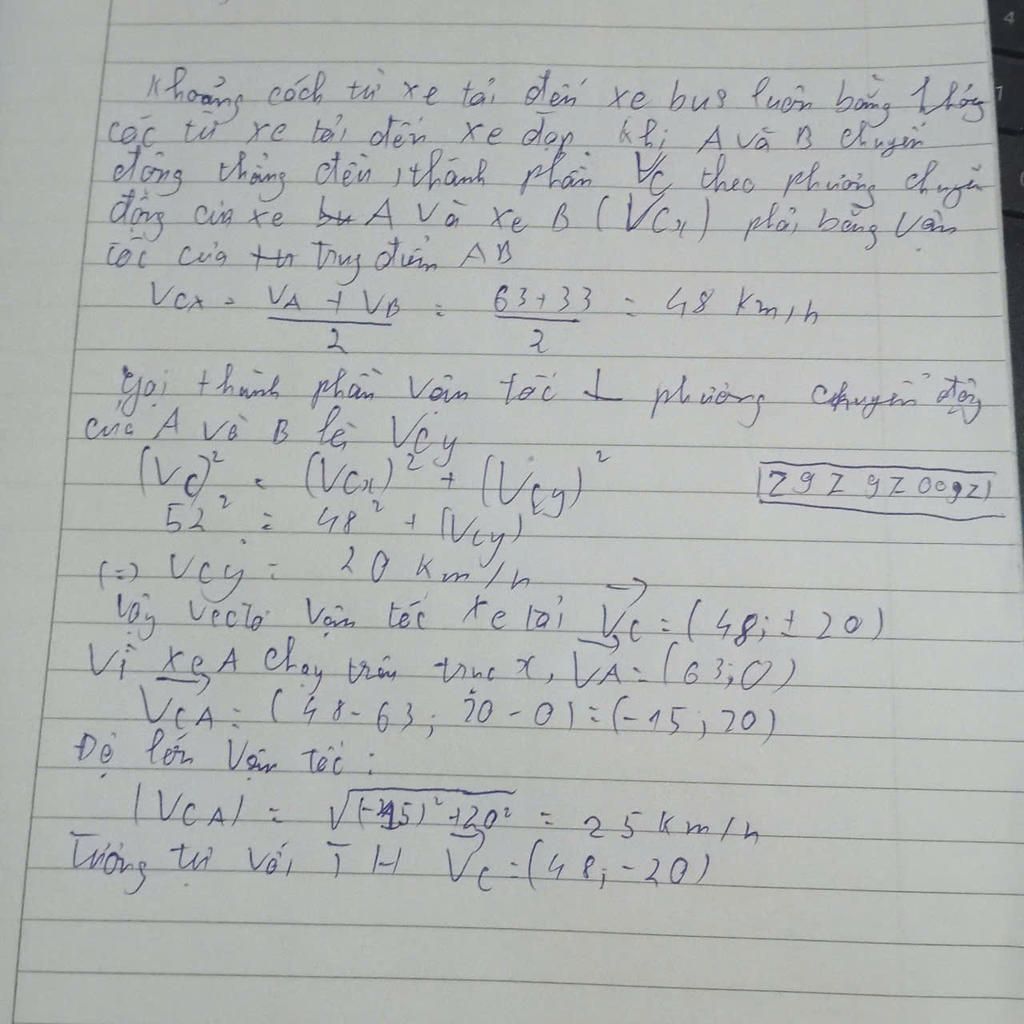 Khoảng cách từ xe tải đến xe bus luôn bằng khoảng
các từ xe tải đến xe đạp. Khi A và B chuyển
động thẳng đều, thành phần Vc theo phương chuyển
động của xe A và xe B (VCx) phải bằng vận
tốc của trung điểm AB
VCx = (VA + VB)/2 = (63+33)/2 = 48 km/h
Gọi thành phần vận tốc ⊥ phương chuyển động
của A và B là VCy
(VC)² = (VCx)² + (VCy)²
52² = 48² + (VCy)
(=) VCy = 20 km/h
Vậy vectơ vận tốc xe tải V⃗C = (48; ± 20)
Vì xe A chạy trên trục x, V⃗A = (63; 0)
V⃗CA = (48-63; 20-0) = (-15; 20)
Độ lớn vận tốc:
|VCA| = √(-15)² + 20² = 25 km/h
Tương tự với TH V⃗C = (48; -20)